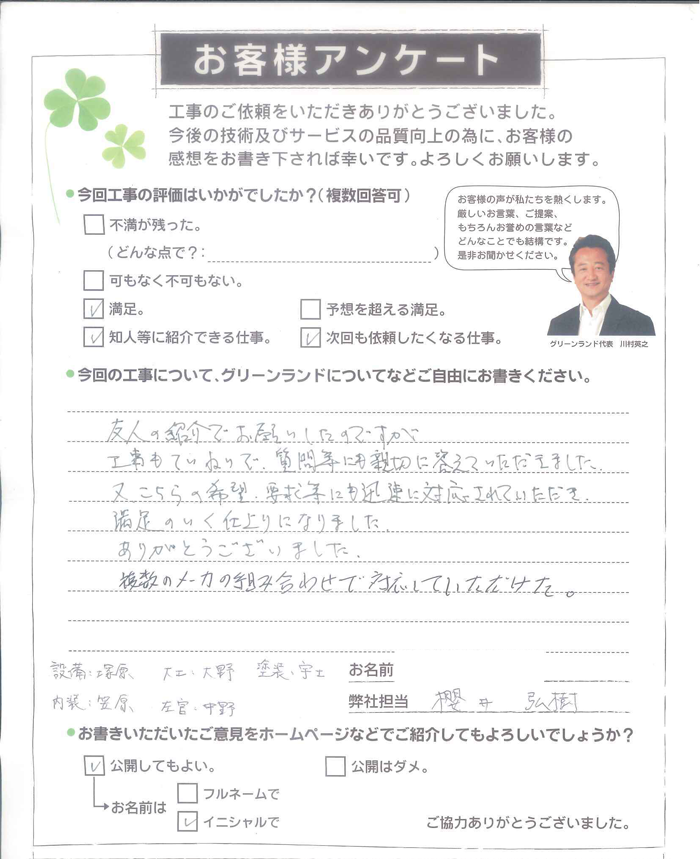 お客様アンケート
工事のご依頼をいただきありがとうございました。
今後の技術及びサービスの品質向上の為に、お客様の
感想をお書き下されば幸いです。よろしくお願いします。
今回工事の評価はいかがでしたか？（複数回答可）
不満が残った。
（どんな点で？：　　　）
可もなく不可もない。
満足。
予想を超える満足。
知人等に紹介できる仕事。
次回も依頼したくなる仕事。
お客様の声が私たちを熱くします。
厳しいお言葉、ご提案、
もちろんお誉めの言葉など
どんなことでも結構です。
是非お聞かせください。
グリーンランド代表　川村英之
今回の工事について、グリーンランドについてなどご自由にお書きください。
友人の紹介でお願いしたのですが
工事もていねいで、質問等にも親切に答えていただきました。
又こちらの希望、要求等にも迅速に対応されていただき、
満足のいく仕上りになりました。
ありがとうございました。
複数のメーカの組み合わせで対応していただけた。
設備：塚原　大工：大野　塗装：宇土
お名前
内装：笠原　左官：中野
弊社担当　櫻井　弘樹
お書きいただいたご意見をホームページなどでご紹介してもよろしいでしょうか？
公開してもよい。
公開はダメ。
お名前は
フルネームで
イニシャルで
ご協力ありがとうございました。